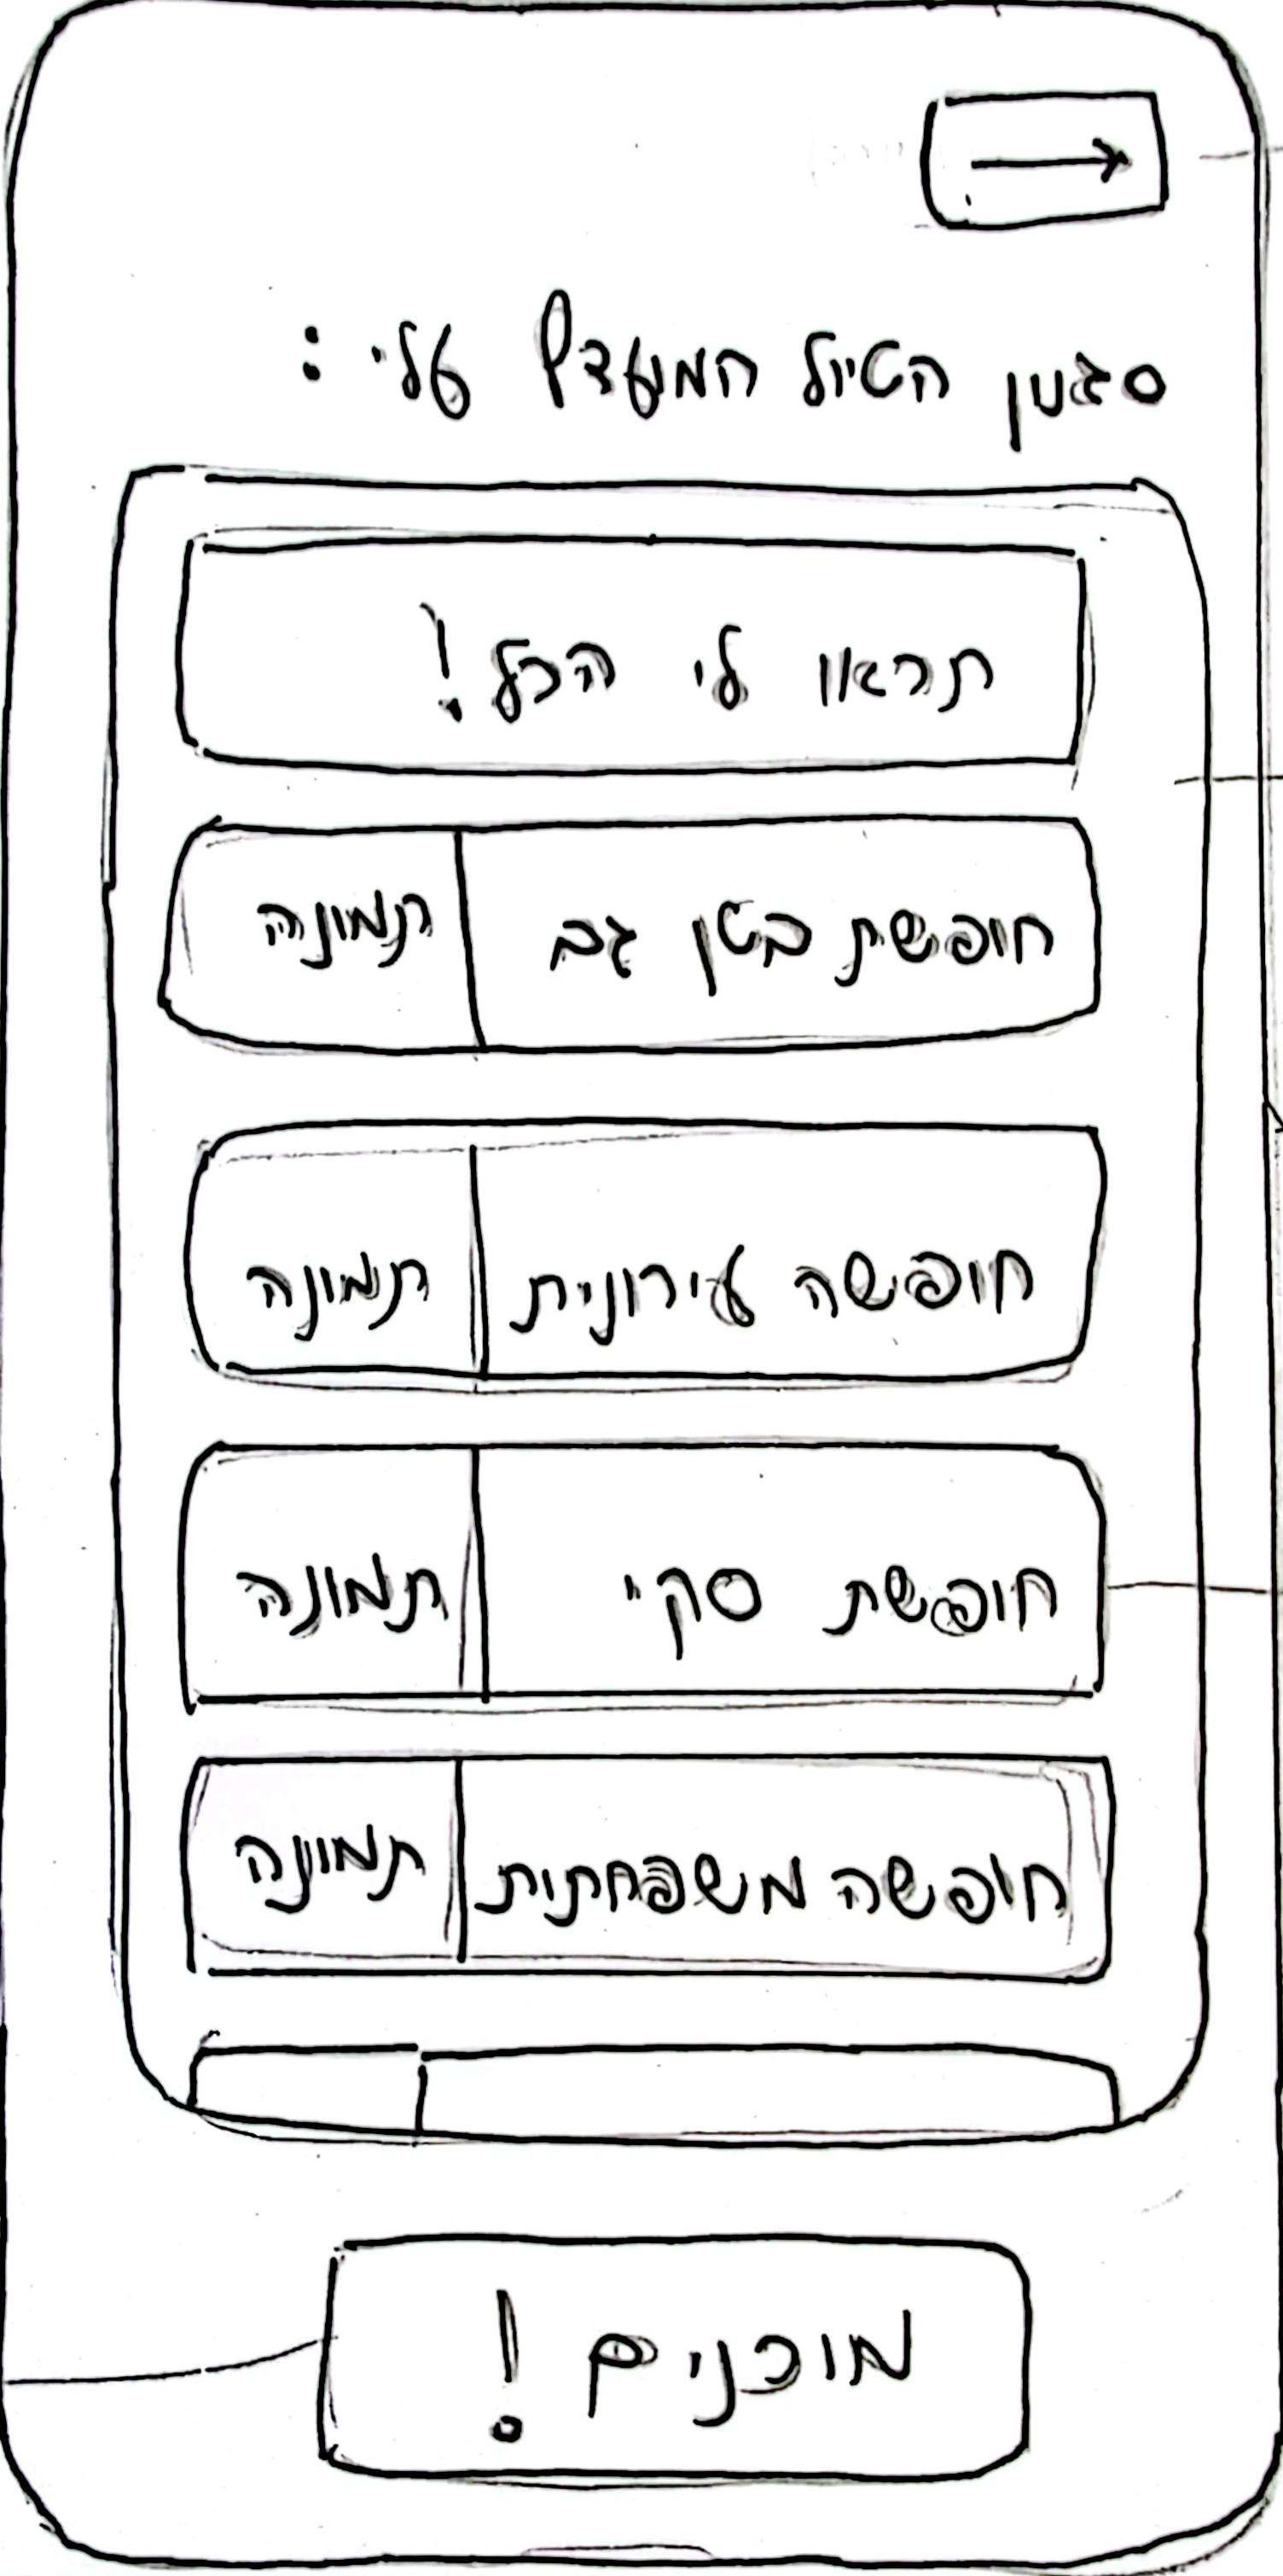 סגנון הטיול המועדף עלי:
תראו לי הכל!
חופשת בטן גב
תמונה
חופשה עירונית
תמונה
חופשת סקי
תמונה
חופשה משפחתית
תמונה
מוכנים!